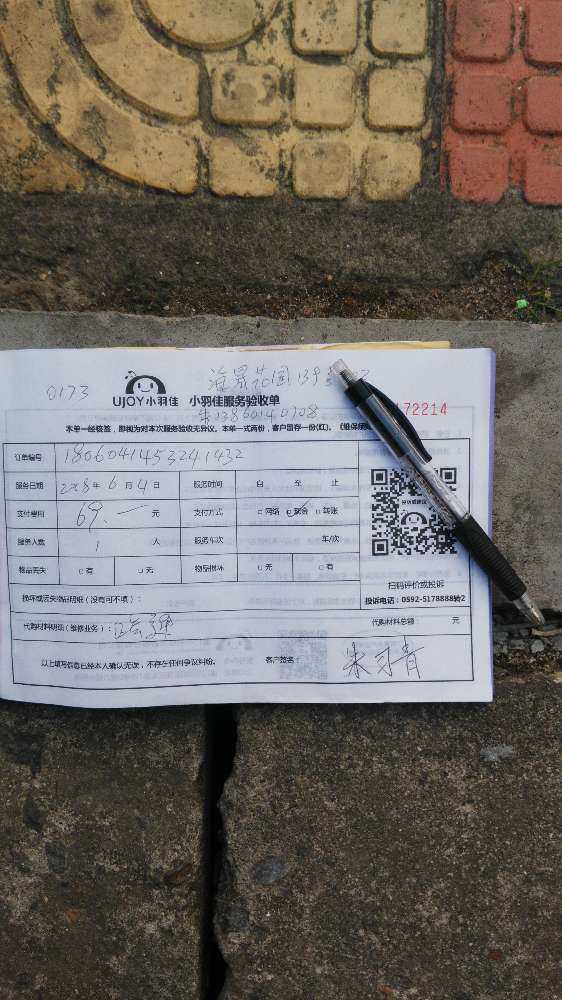 0173
UJOY小羽佳 小羽佳服务验收单
172214
本单一经核签，即视为对本次服务验收无异议。本单一式两份，客户留存一份(红)。
订单编号 1806041453241432
服务日期 2018年6月4日 服务时间 自 至 止
支付费用 69.一元 支付方式 □网络 □现金 □转账
服务人数 1 人 服务车次 车/次
物品丢失 □有 □无 物品损坏 □无 □有
扫码评价或投诉
投诉电话：0592-5178888转2
损坏或丢失物品明细（没有可不填）：
代购材料明细（维修业务）： 代购材料总额： 元
以上填写信息已经本人确认无误，不存在任何争议纠纷。 客户签名：